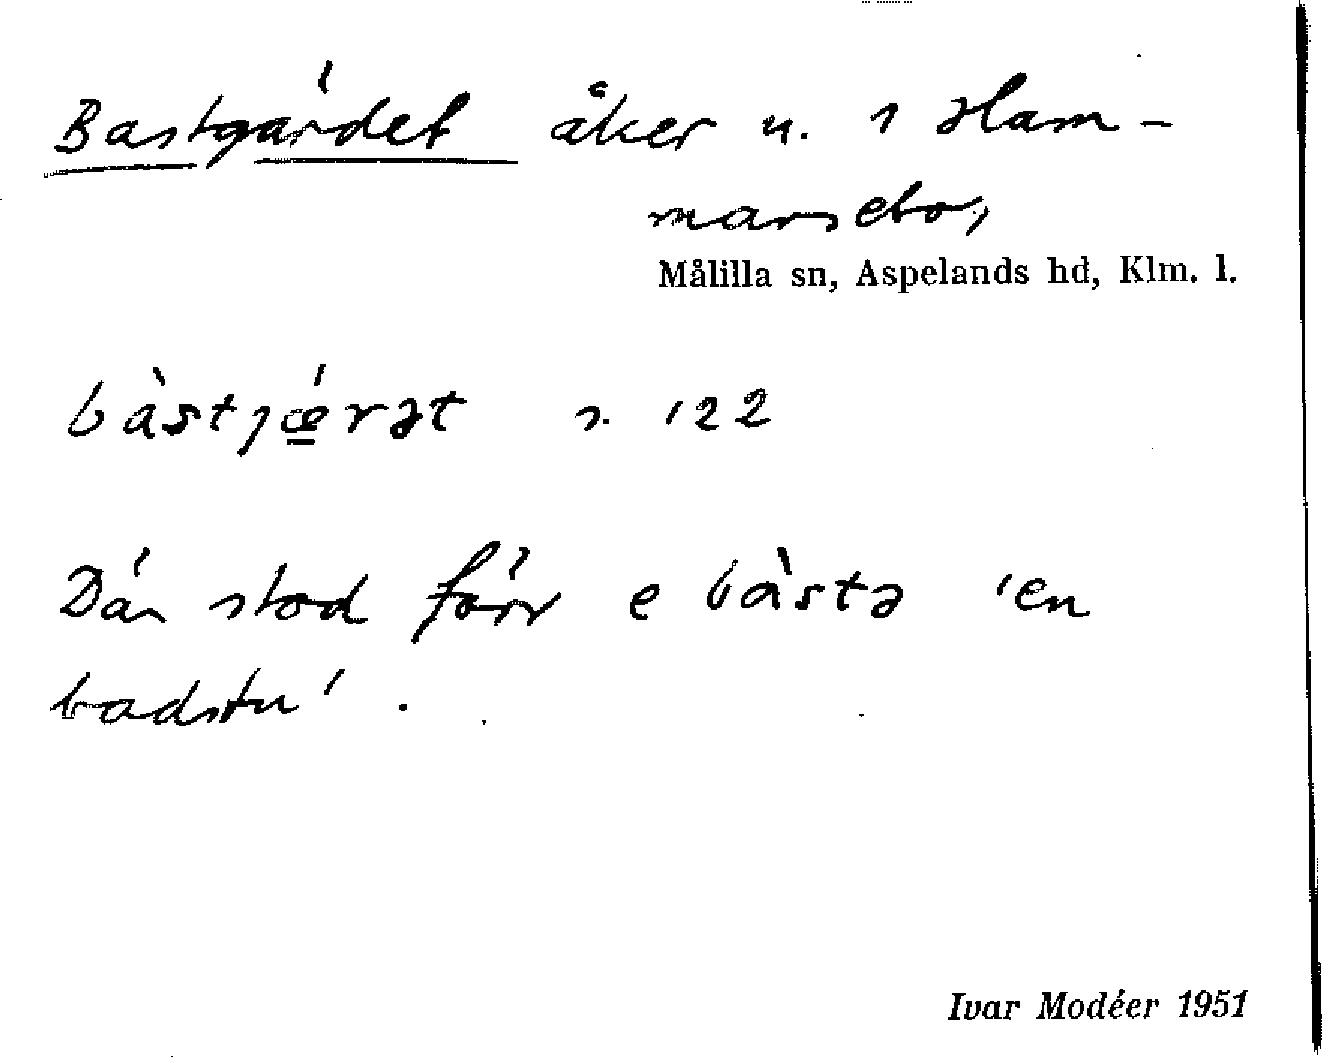 Bastgärdet åker n. i Ham-
marsebo,
Målilla sn, Aspelands hd, Klm. l.
bàstjǽrət s. 122
Där stod förr e bàstə 'en
badstu'.
Ivar Modéer 1951